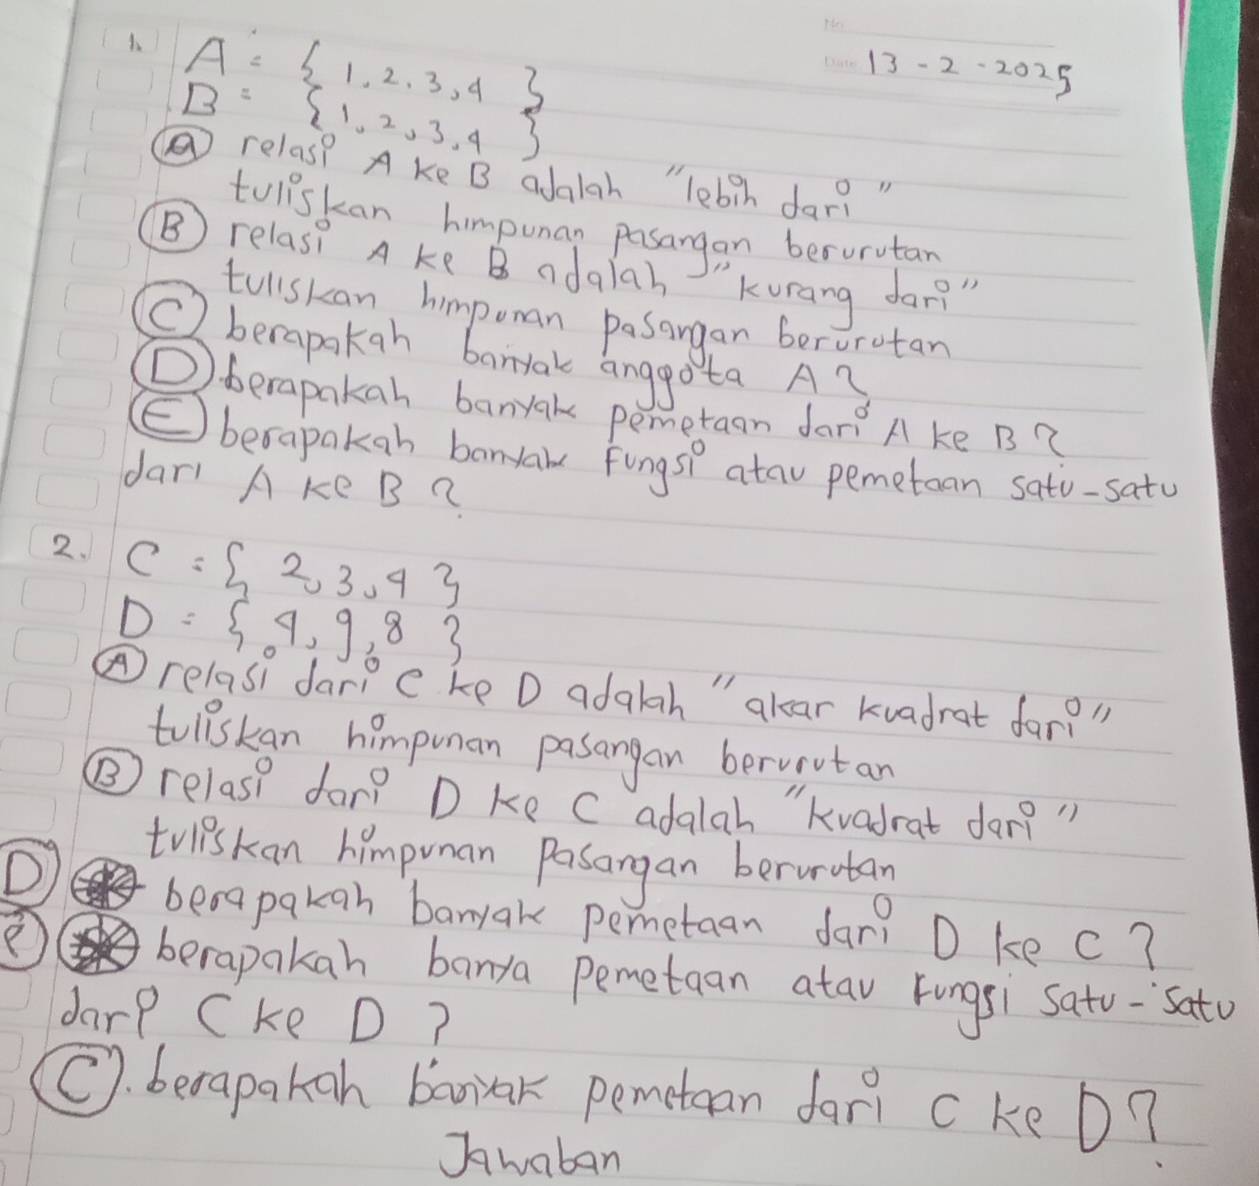 No
Date 13-2-2025
1. A = { 1, 2, 3, 4 }
B = { 1, 2, 3, 4 }
a relasi A ke B adalah "lebih dari"
tuliskan himpunan pasangan berurutan
B relasi A ke B adalah "kurang dari"
tuliskan himpunan pasangan berurutan
C berapakah banyak anggota A?
D berapakah banyak pemetaan dari A ke B?
E berapakah banyak fungsi atau pemetaan satu-satu
dari A ke B?
2. C = { 2, 3, 4 }
D = { 4, 9, 8 }
A relasi dari C ke D adalah "akar kuadrat dari"
tuliskan himpunan pasangan berurutan
B relasi dari D ke C adalah "kuadrat dari"
tuliskan himpunan pasangan berurutan
D berapakah banyak pemetaan dari D ke C?
e berapakah banya pemetaan atau fungsi satu-satu
dari C ke D?
C. berapakah banyak pemetaan dari C ke D?
Jawaban